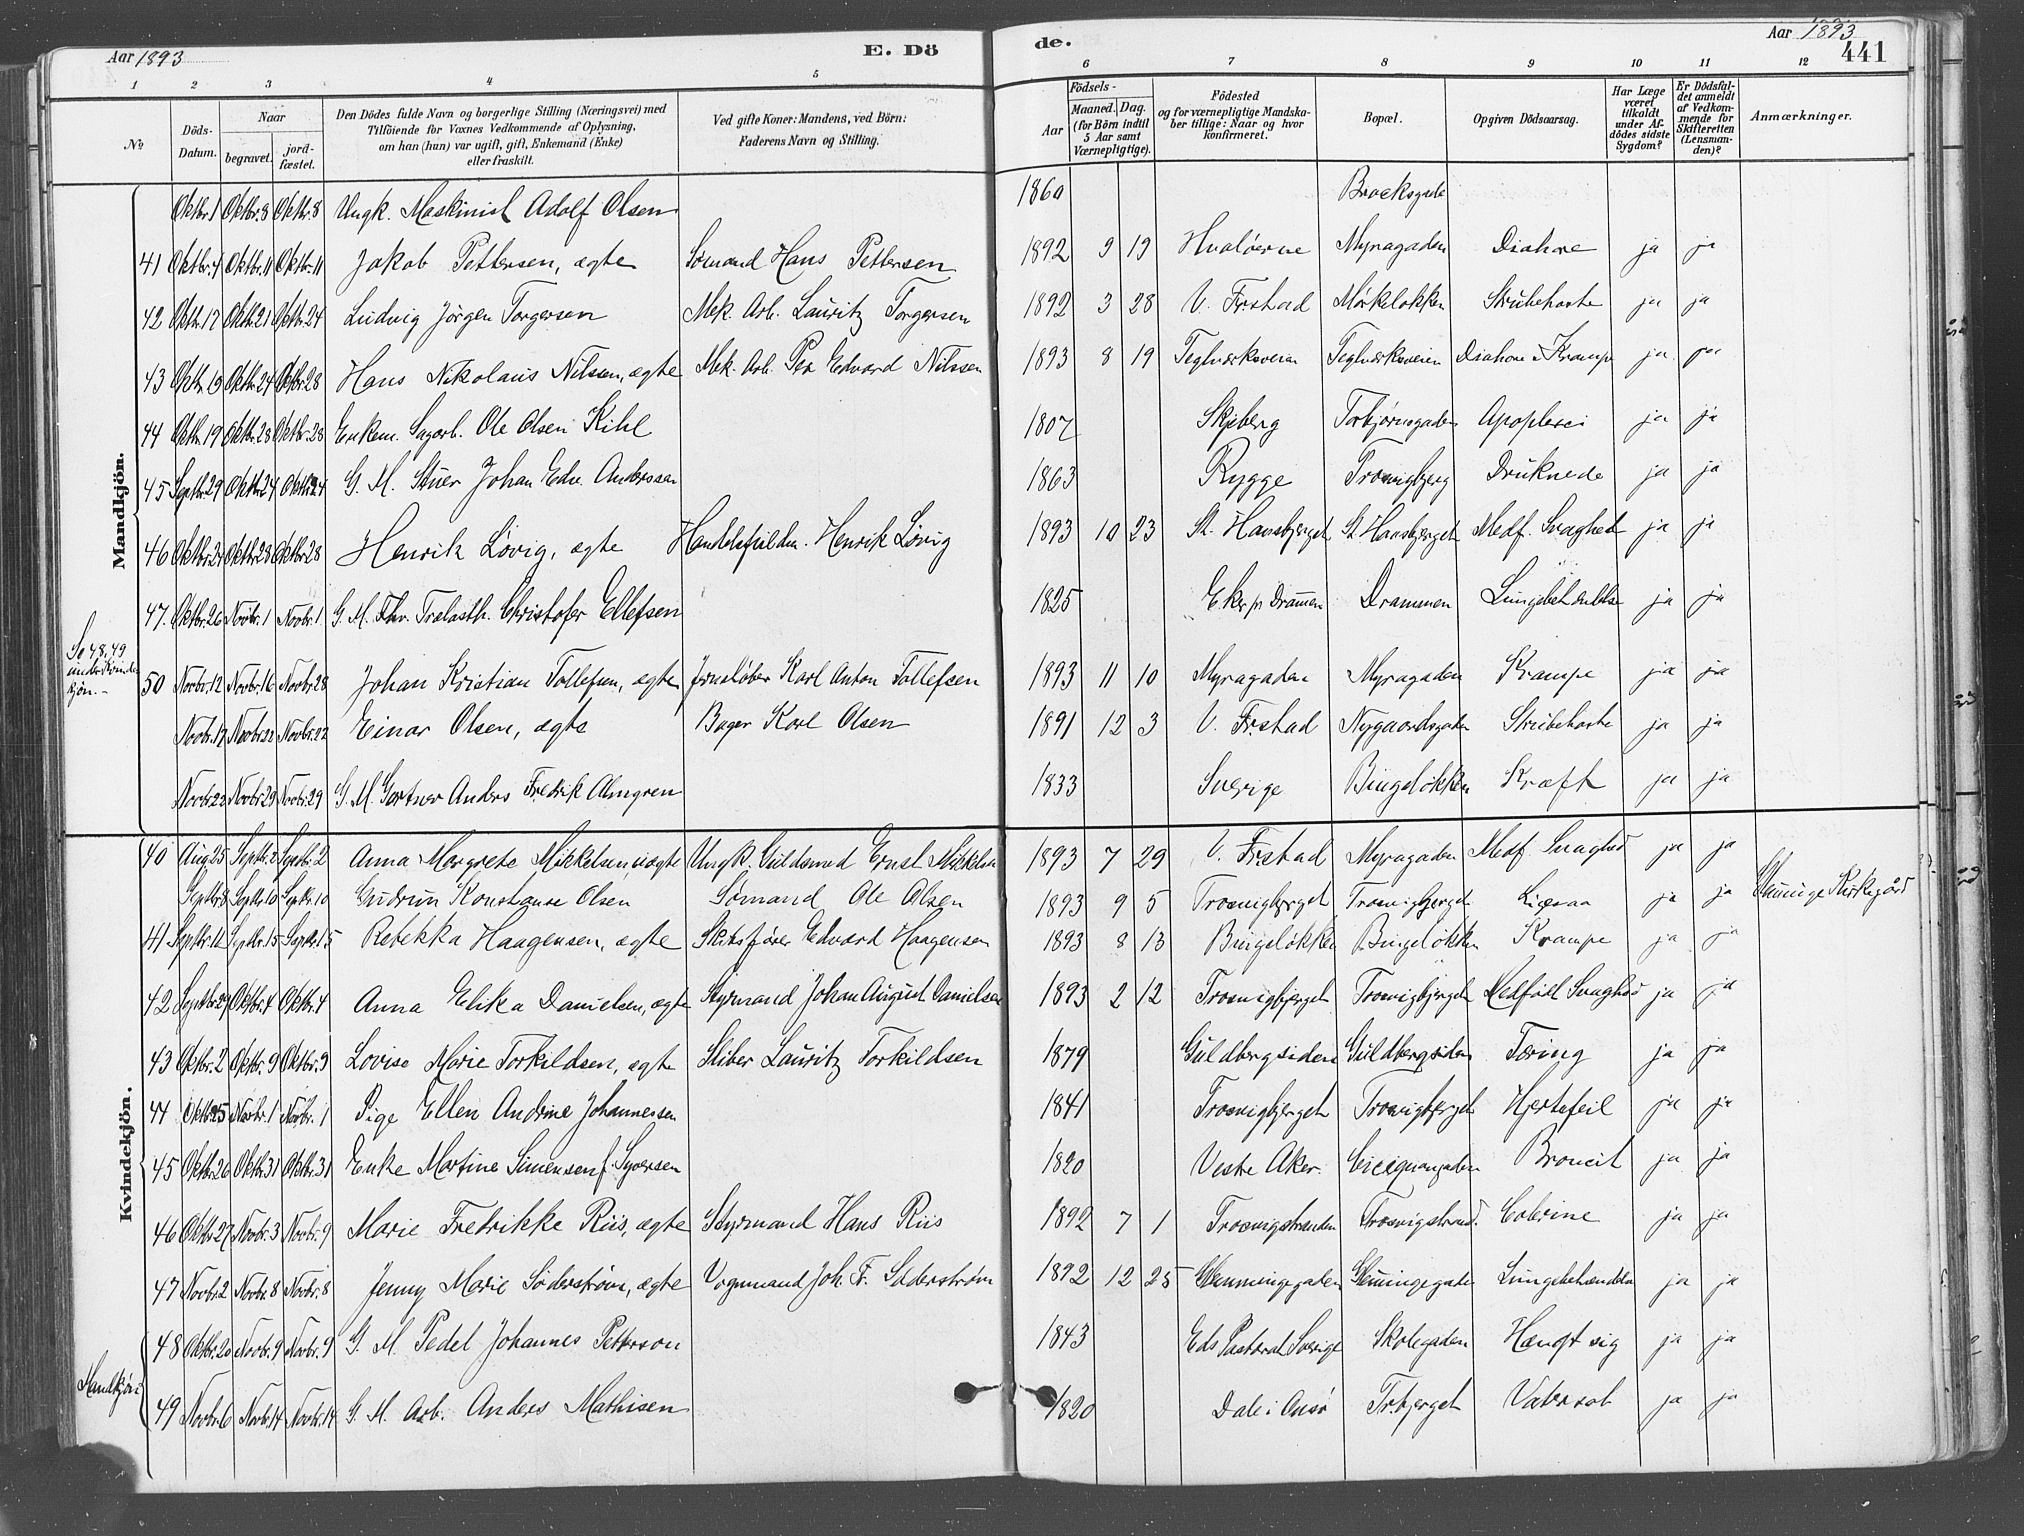 Aar 1893 E. Dö de. Aar 1893 441
1 2 3 4 5 6 7 8 9 10 11 12
No Döds-Datum. Naar begravet. jordfæstet. Den Dödes fulde Navn og borgerlige Stilling (Næringsvei) med Tilföiende for Voxnes Vedkommende af Oplysning, om han (hun) var ugift, gift, Enkemand (Enke) eller fraskilt. Ved gifte Koner: Mandens, ved Börn: Faderens Navn og Stilling. Födsels- Aar Maaned. Dag. (for Börn indtil 5 Aar samt Værnepligtige). Födested og for værnepligtige Mandskaber tillige: Naar og hvor konfirmeret. Bopæl. Opgiven Dödsaarsag. Har Læge været tilkaldt under Afdödes sidste Sygdom? Er Dödsfaldet anmeldt af Vedkommende for Skifteretten (Lensmanden)? Anmærkninger.
Mandkjön.
Oktbr. 1 Oktbr. 8 Oktbr. 8 Ungk. Maskinist Adolf Olsen 1860 Brocksgade
41 Oktbr. 4 Oktbr. 11 Oktbr. 11 Jakob Pettersen, ægte Sømand Hans Pettersen 1892 9 19 Hvaløerne Myragaden Diahore ja ja
42 Oktbr. 17 Oktbr. 21 Oktbr. 24 Ludvig Jörgen Torgersen Mek. Arb. Lauritz Torgersen 1892 3 28 V. Frstad Mørkeløkken Strubehoste ja ja
43 Oktbr. 19 Oktbr. 24 Oktbr. 28 Hans Nikolaus Nilsen, ægte Mek. Arb. Per Edvard Nilssen 1893 8 19 Teglværksveien Teglværksveien Diahore, Krampe ja ja
44 Oktbr. 19 Oktbr. 28 Oktbr. 28 Enkem. Sagarb. Ole Olsen Kihl 1807 Skjeberg Torbjørnsgaden Apoplexi ja ja
45 Septbr. 29 Oktbr. 24 Oktbr. 24 G. M. Stuer Johan Edv. Anderssen 1863 Rygge Trosvigbjerg Druknede ja ja
46 Oktbr. 24 Oktbr. 28 Oktbr. 28 Henrik Løvig, ægte Henrik Løvig 1893 10 23 St. Hansbjerget St. Hansbjerget Medf. Svaghed ja ja
47. Oktbr. 26 Novbr. 1 Novbr. 1 G. M. Fhv. Trælasth. Christofer Ellefsen 1825 Eker pr Drammen Drammen Lungebetændelse ja ja
No 48, 49 under Kvindekjön.-
50 Novbr. 12 Novbr. 16 Novbr. 28 Johan Kristian Tollefsen, ægte Karl Anton Tollefsen 1893 11 10 Myragaden Myragaden Krampe ja ja
Novbr. 17 Novbr. 22 Novbr. 22 Einar Olsen, ægte Bager Karl Olsen 1891 12 3 V. Frstad Nygaardsgaden Strubehoste ja ja
Novbr. 23 Novbr. 29 Novbr. 29 G. M. Gartner Anders Fredrik Almgren 1833 Sverige Bingeløkken Kræft ja ja
Kvindekjön.
40 Aug. 25 Septbr. 2 Septbr. 2 Anna Margrete Mikkelsen, uægte Ungk. Guldsmed Ernst Mikkelsen 1893 7 29 V. Frstad Myragaden Medf. Svaghed ja ja
Septbr. 8 Septbr. 10 Septbr. 10 Gudrun Konstanse Olsen Sømand Ole Olsen 1893 9 5 Trosvigbjerget Trosvigbjerget Ligesaa ja ja Glemminge Kirkegård
41 Septbr. 11 Septbr. 15 Septbr. 15 Rebekka Haagensen, ægte Skibsfører Edvard Haagensen 1893 8 13 Bingeløkken Bingeløkken Krampe ja ja
42 Septbr. 29 Oktbr. 4 Oktbr. 4 Anna Erika Danielsen, ægte Styrmand Johan August Danielsen 1893 2 12 Trosvigbjerget Trosvigbjerget Medfödt Svaghed ja ja
43 Oktbr. 2 Oktbr. 9 Oktbr. 9 Lovise Marie Torkildsen, ægte Sliber Lauritz Torkildsen 1879 Guldbergsiden Guldbergsiden Tæring ja ja
44 Oktbr. 25 Novbr. 1 Novbr. 1 Pige Ellen Andrine Johannesen 1841 Trosvigbjerget Trosvigbjerget Hjertefeil ja ja
45 Oktbr. 26 Oktbr. 31 Oktbr. 31 Enke Martine Simensen f. Syversen 1820 Vestre Aker. Cicignongaden Broncit ja ja
46 Oktbr. 27 Novbr. 3 Novbr. 9 Marie Fredrikke Riis, ægte Styrmand Hans Riis 1892 7 1 Trosvigstranden Trosvigstrand. Colerine ja ja
47 Novbr. 2 Novbr. 8 Novbr. 8 Jenny Marie Söderström, ægte Vognmand Joh. Fr. Søderstrøm 1892 12 25 Glemmingegaden Glemmingegaden Lungebetændelse ja ja
Mandkjön
48 Oktbr. 20 Novbr. 9 Novbr. 9 G. M. Pedel Johannes Petterson 1843 Eds Pastorat Sverige Skolegaden Hængt sig ja ja
49 Novbr. 6 Novbr. 14 Novbr. 14 G. M. Arb. Anders Mathisen 1820 Dale i Onsø Tr.bjerget Vatersot ja ja